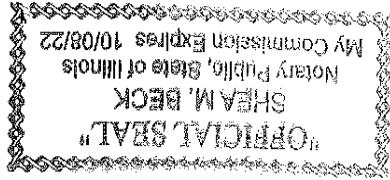 "OFFICIAL SEAL"
SHEA M. BECK
Notary Public, State of Illinois
My Commission Expires 10/08/22